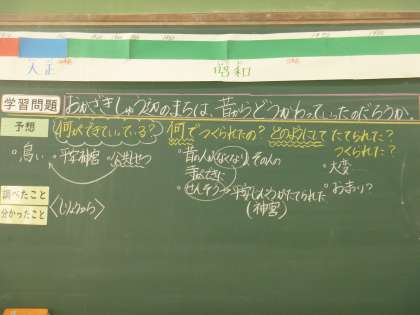 大正
昭和
学習問題
おかざきしゅう辺のまちは、昔からどうかわっていったのだろうか。
予想
何ができていっている?
何でつくられたの?
どのようにして たてられた?
つくられた?
鳥い
平安神宮
公共しせつ
昔の人がなくなり、その人の
大変
せんそう→平安じんぐうがたてられた
(神宮)
お金い?
調べたこと
分かったこと